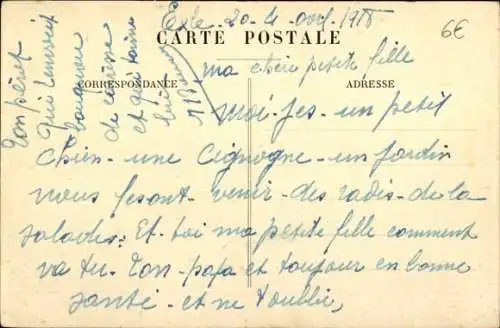 20-4-avril-1918
6€
CARTE POSTALE
CORRESPONDANCE
ADRESSE
ma chère petite fille
moi-jes-un petit
Chien-une Cignogne-un jardin
nous fesont-venir-des radis-de la
salades: Et-toi ma petite fille comment
va tu-Ton-papa et toujour en bonne
santé-et ne t'oublie,
Ton père
qui
et qui t'aime